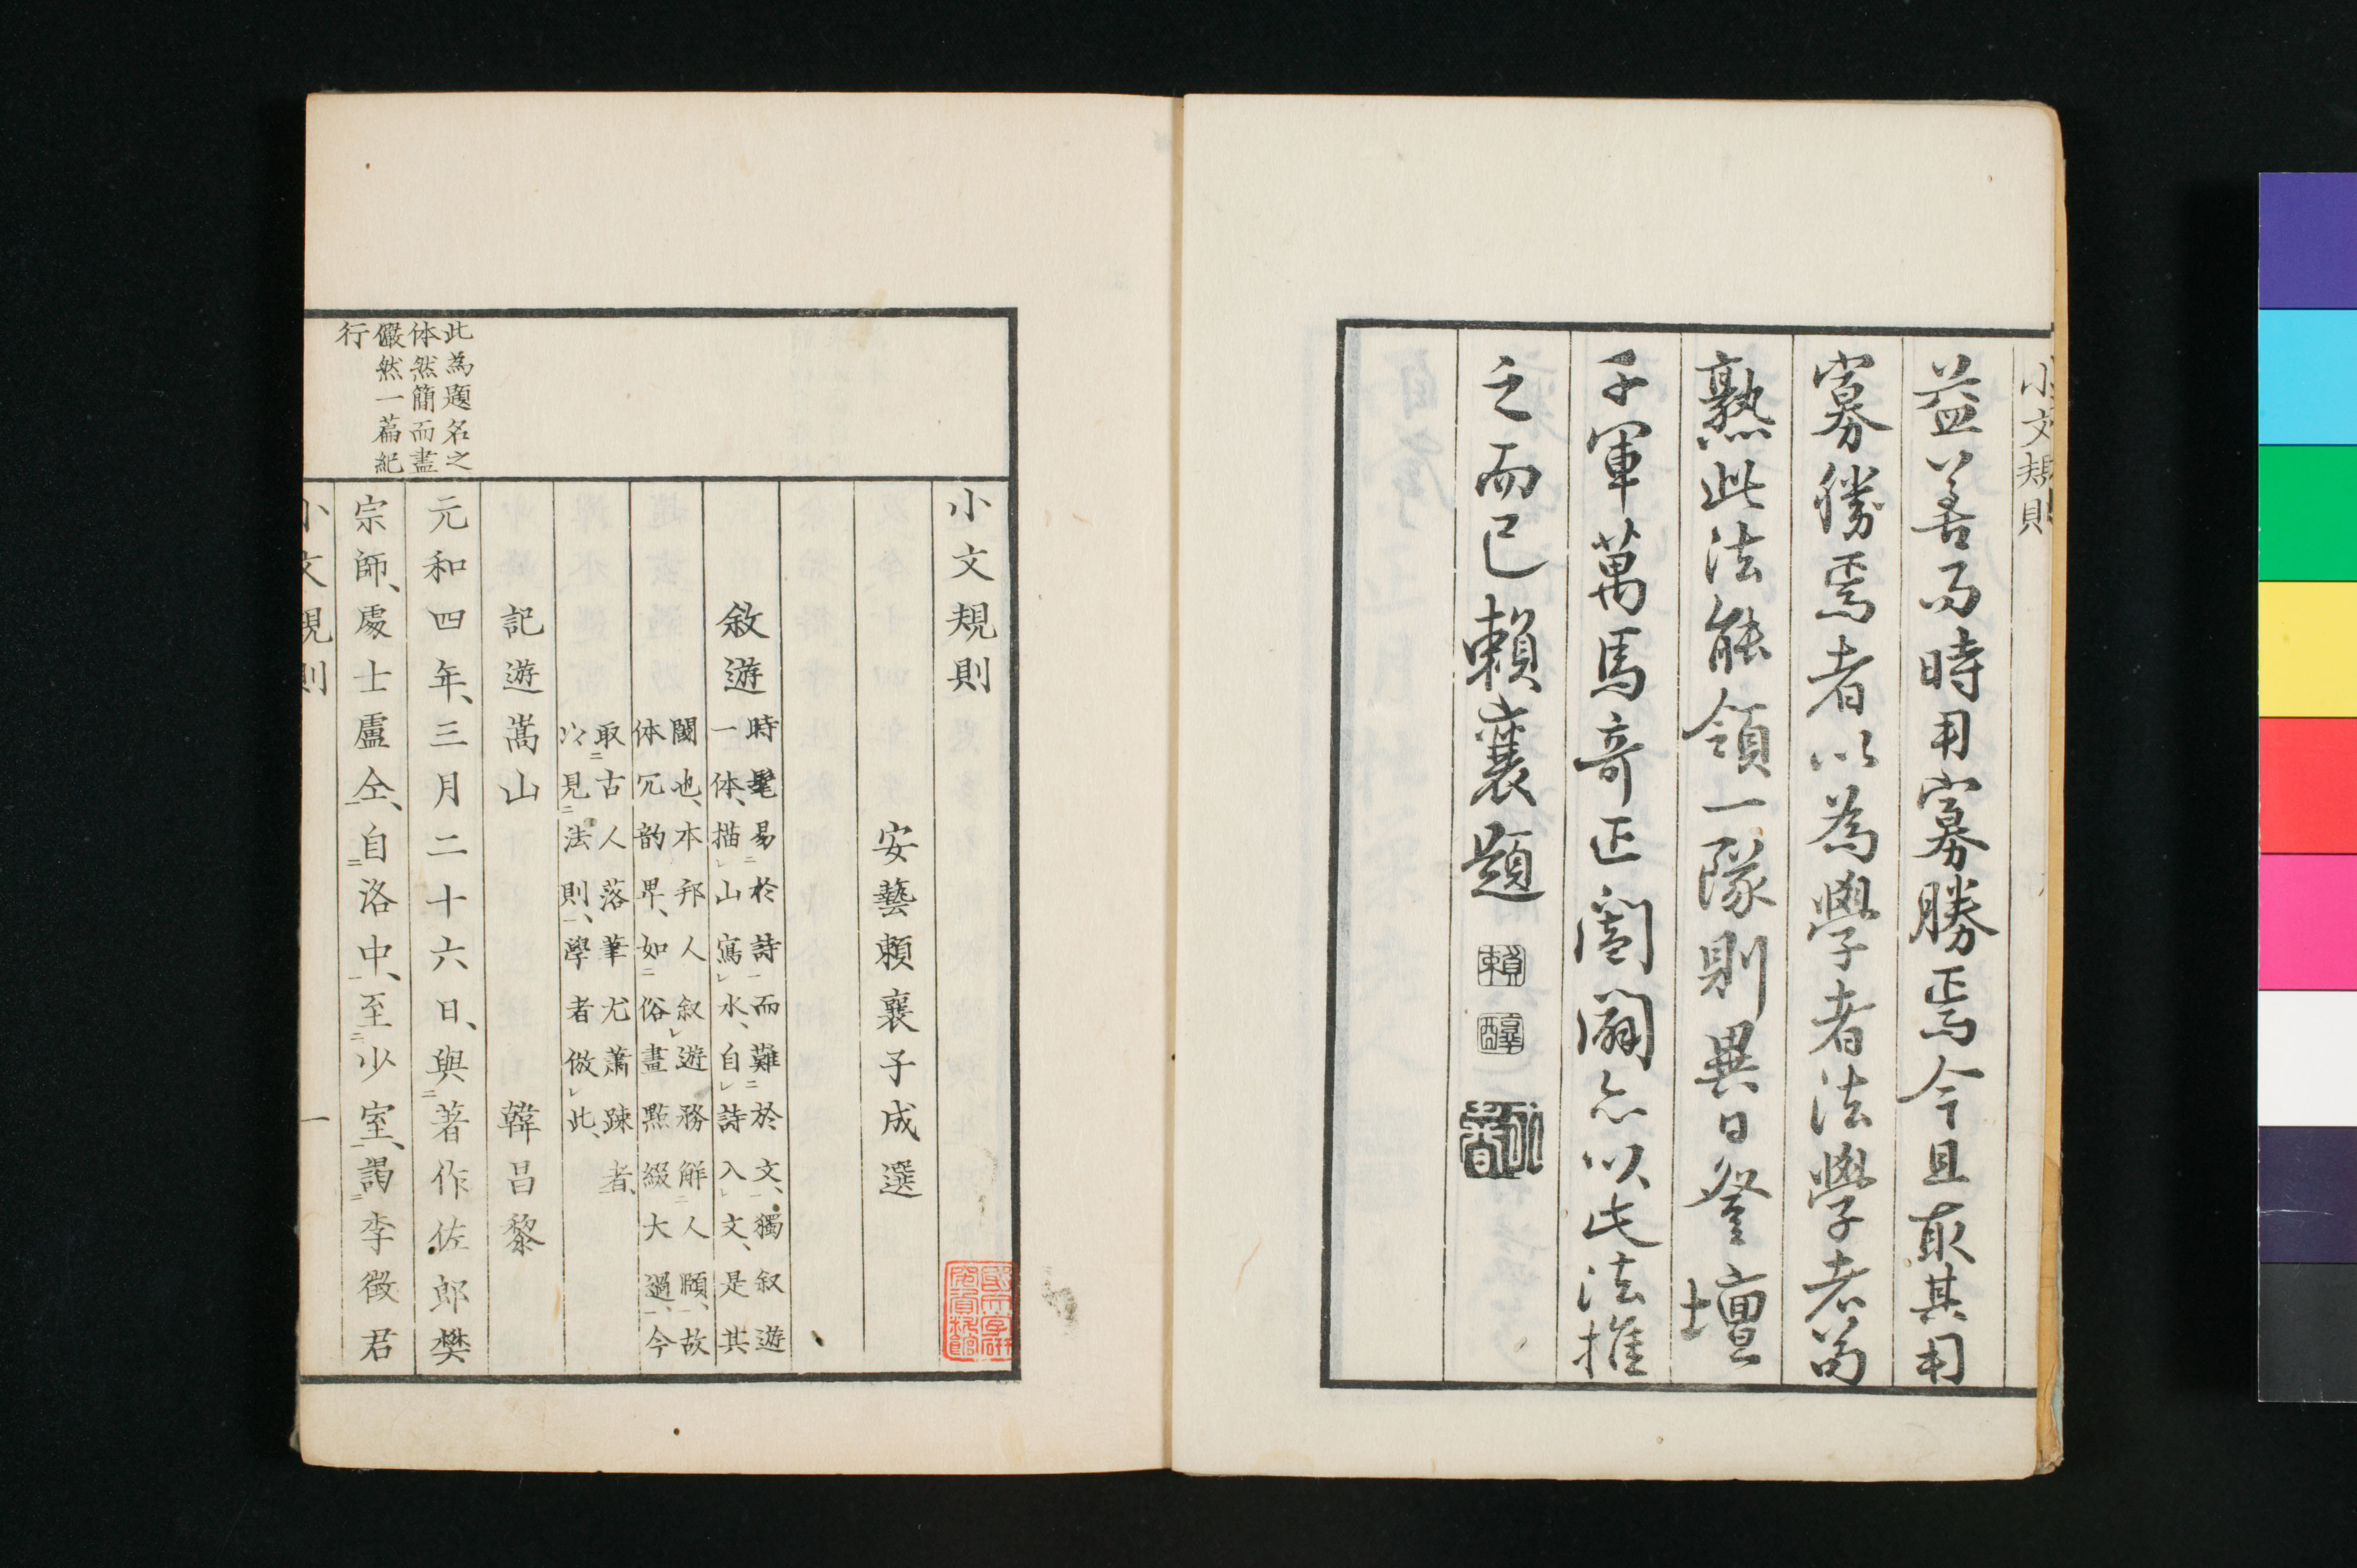 小文規則
益善而時用寡勝焉今且取其用
寡勝焉者以為學者法學者苟
熟此法能領一隊則異日登壇
千軍萬馬奇正闔闢亦以此法推
之而已賴襄題
小文規則
安藝賴襄子成選
敘遊
時髦易於詩而難於文、獨叙遊
一体、描山寫水、自詩入文、是其
闖也、本邦人叙遊務解人頤、故
体冗韵卑、如俗畫點綴大過、今
取古人落筆尤蕭踈者、
以見法則、學者倣此、
記遊嵩山
韓昌黎
元和四年、三月二十六日、與著作佐郎樊
宗師、處士盧仝、自洛中、至少室、謁李徵君
此為題名之
体然簡而盡
儼然一篇紀
行
小文規則
一